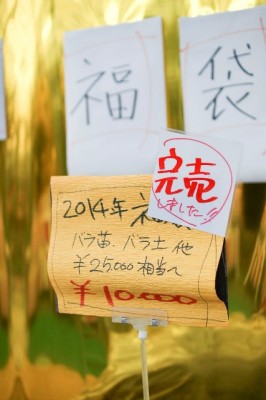 福
袋
完売
しました!!
2014年 福
バラ苗、バラ土 他
¥25,000相当へ
¥10000